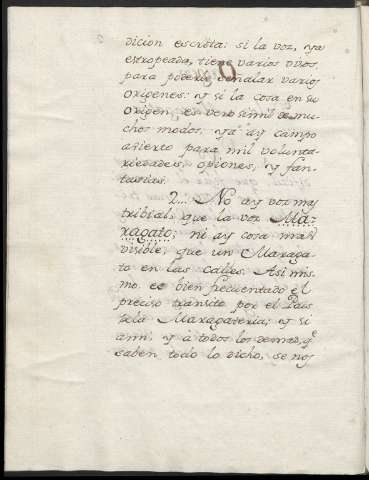 dicion escrita: si la voz, ya
estropeada, tiene varios visos,
para poderse señalar varios
origenes: y si la cosa en su
origen es verosimil de mu-
chos modos, ya ay campo
abierto para mil volunta-
riedades, opiniones, y fan-
tasias.
2... No ay voz mas
tribial, que la voz Ma-
ragato; ni ay cosa mas
visible, que un Maraga-
to en las calles. Asimis-
mo es bien frecuentado el
preciso transito por el Pais
de la Maragateria; y si
a mi, y à todos los demas, q.e
saben todo lo dicho, se nos